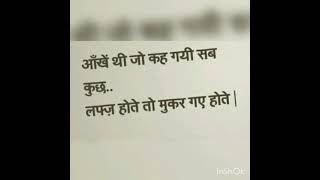 आँखें थी जो कह गयी सब
कुछ..
लफ्ज़ होते तो मुकर गए होते |
InShOt